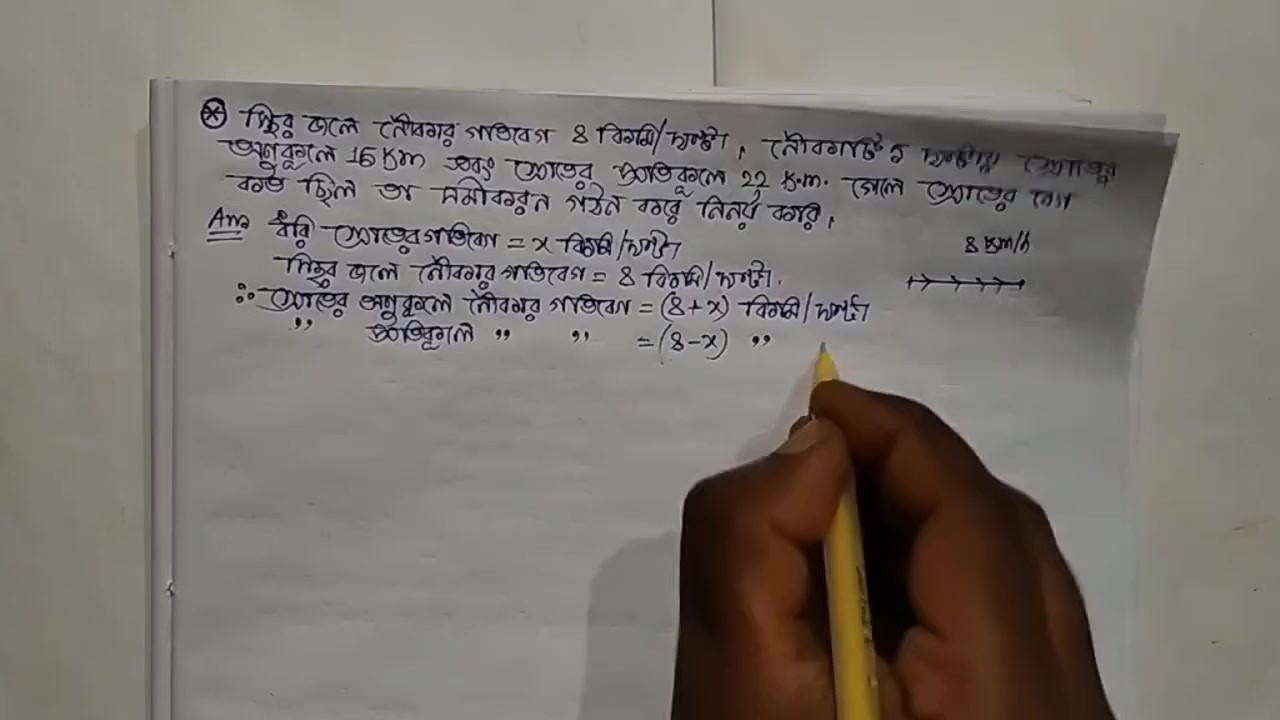 স্থির জলে নৌকার গতিবেগ 8 কিমি/ঘন্টা। নৌকাটি 5 ঘন্টায় স্রোতের
অনুকূলে 15 Km এবং স্রোতের প্রতিকূলে 22 K.m. গেলে স্রোতের বেগ
কত ছিল তা সমীকরন গঠন করে নির্নয় করি।
Ans ধরি স্রোতের গতিবেগ = x কিমি/ঘন্টা
8 Km/h
স্থির জলে নৌকার গতিবেগ = 8 কিমি/ঘন্টা.
∴ স্রোতের অনুকূলে নৌকার গতিবেগ = (8+x) কিমি/ঘন্টা
" প্রতিকূলে " " = (8-x) "